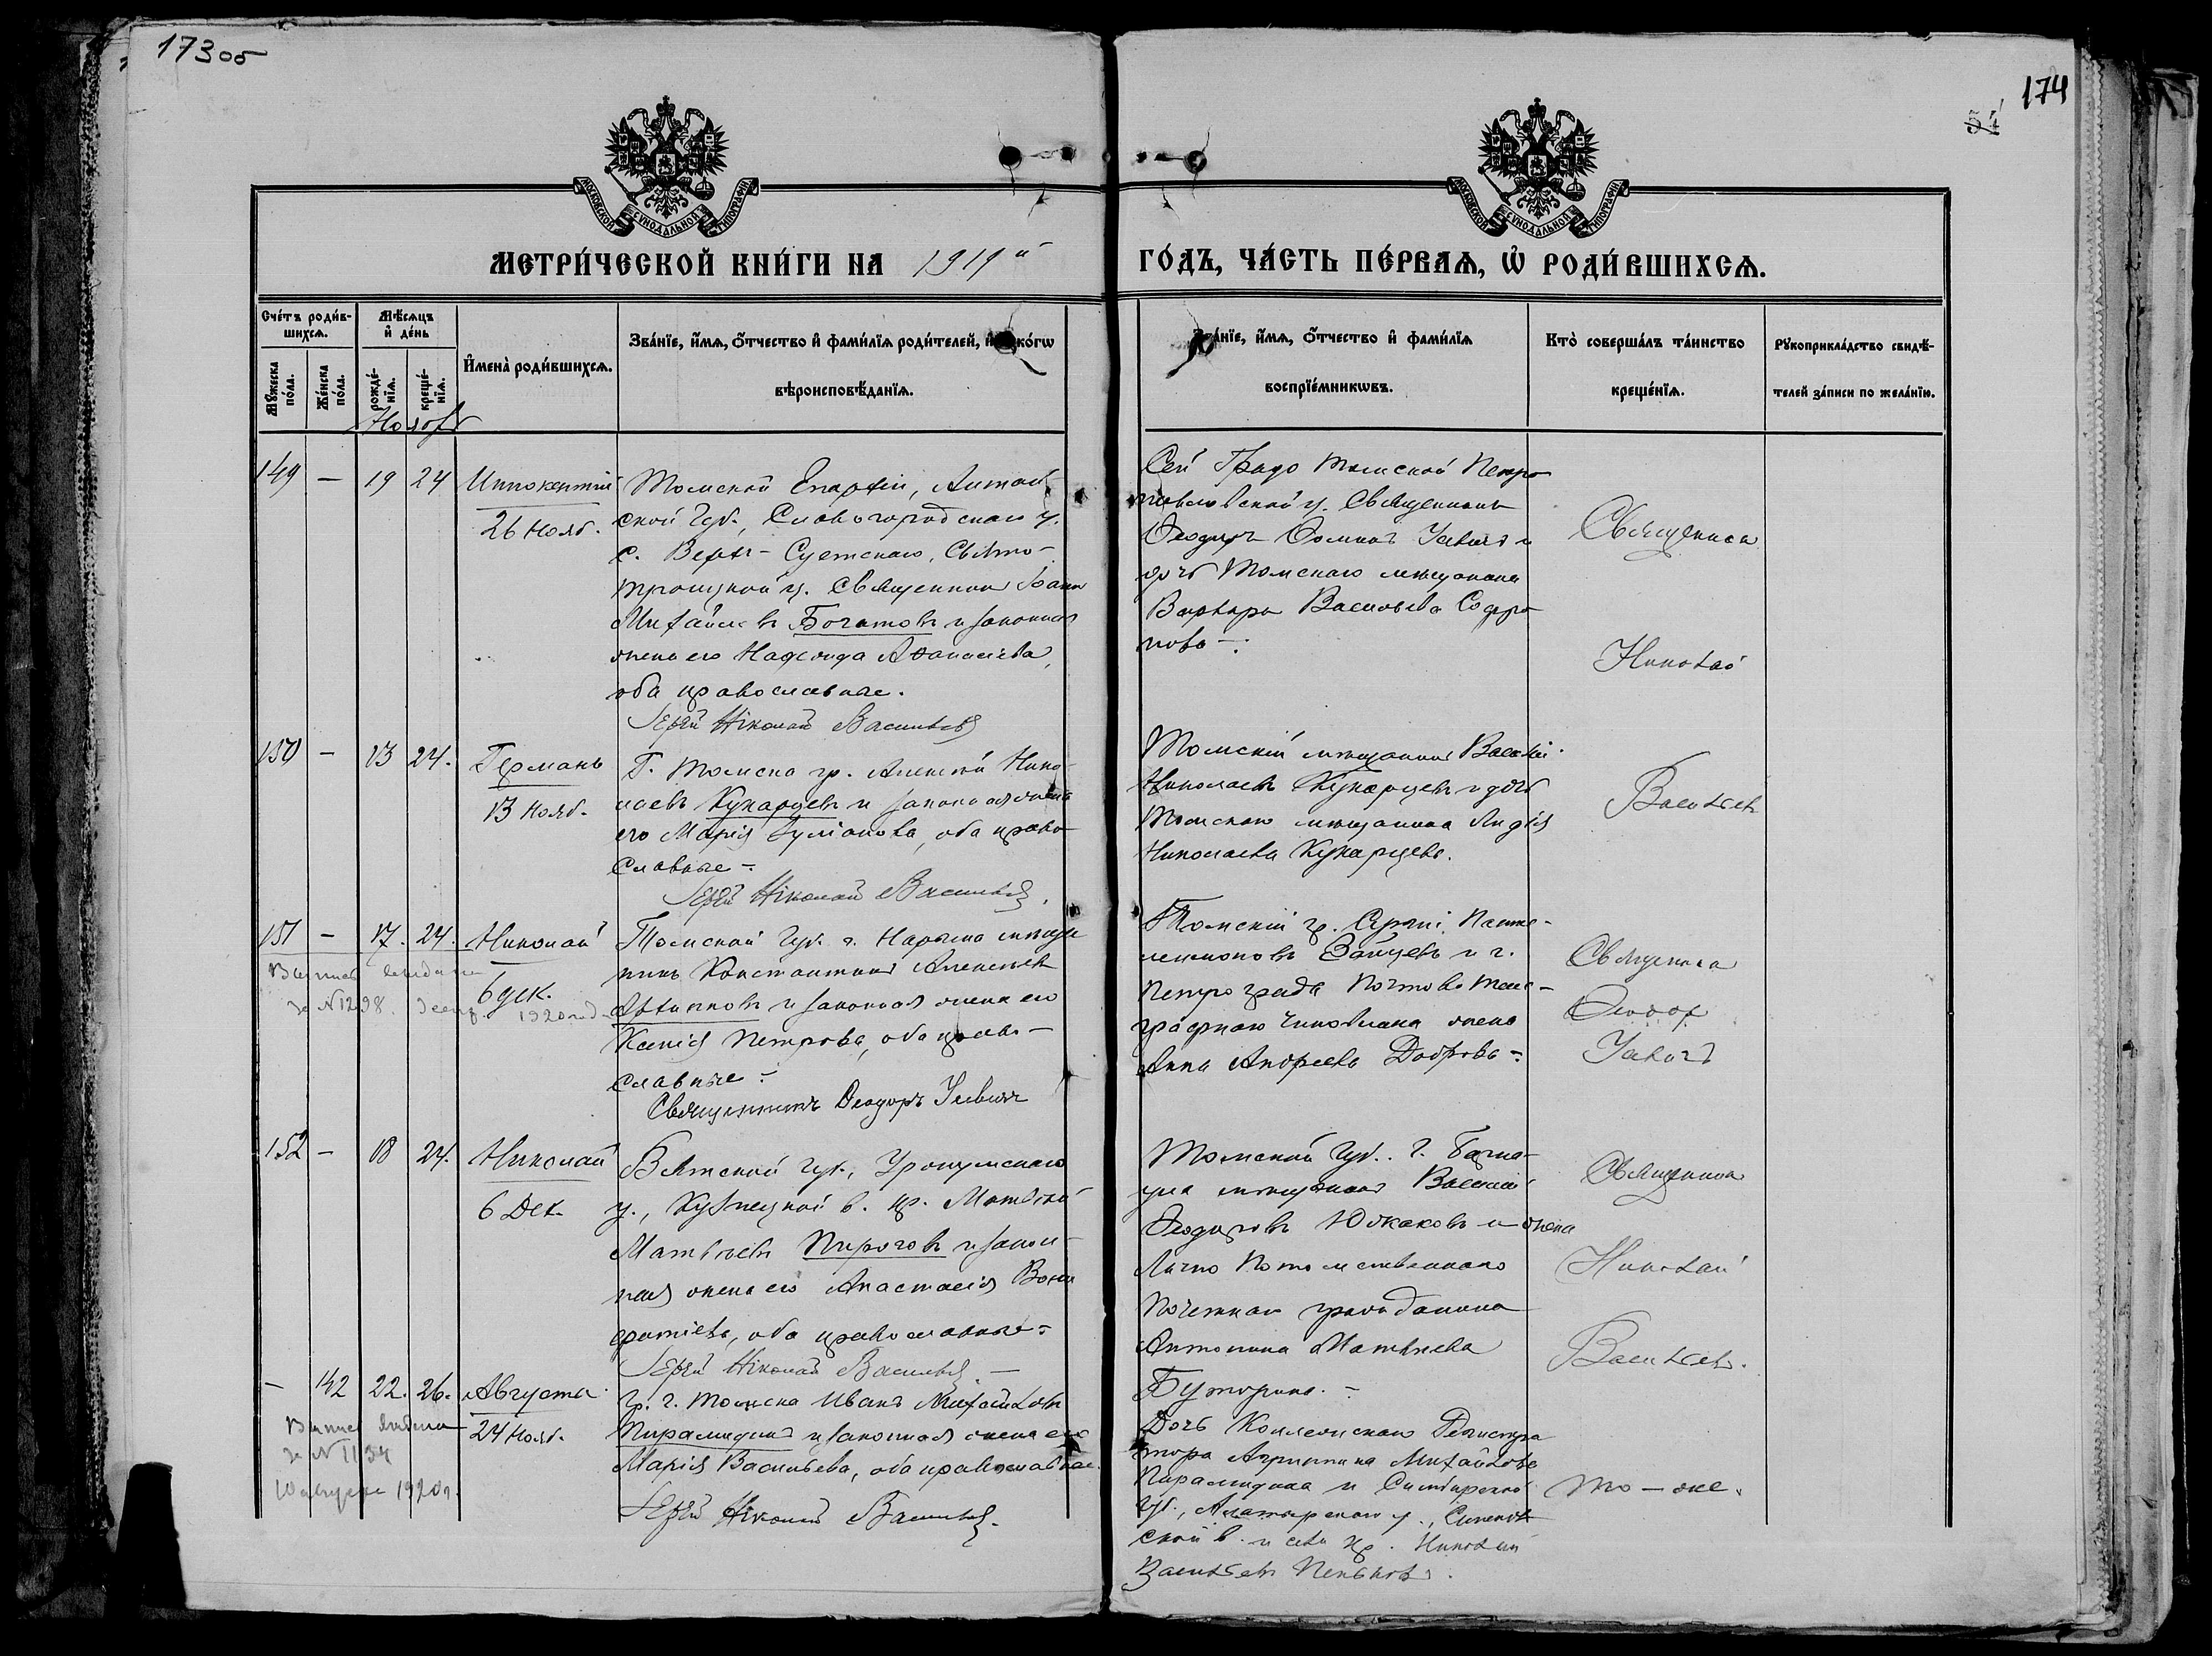 173об
174
54
МОСКОВСКОЙ СУНОДАЛЬНОЙ ТИПОГРАФІИ
МОСКОВСКОЙ СУНОДАЛЬНОЙ ТИПОГРАФІИ
МЕТРИ́ЧЕСКОЙ КНИ́ГИ НА 1919й
ГО́ДЪ, ЧА́СТЬ ПЕ́РВАѦ, Ѡ РОДИ́ВШИХСѦ.
Сче́тъ роди́в-
шихсѧ.
Мѣ́сѧцъ
и҆ де́нь
Мꙋ́жеска
по́ла.
Же́нска
по́ла.
рожде́-
нїѧ.
креще́-
нїѧ.
И҆мена̀ роди́вшихсѧ.
Зва́нїе, и҆́мѧ, ѻ҆́тчество и҆ фами́лїѧ роди́телей, и҆ ко́гѡ
вѣроисповѣ́данїѧ.
Зва́нїе, и҆́мѧ, ѻ҆́тчество и҆ фами́лїѧ
воспрїе́мникѡвъ.
Кто̀ соверша́лъ та́инство
креще́нїѧ.
Рꙋкоприкла́дство свидѣ́-
телей за́писи по жела́нїю.
Ноябр
149 — 19 24 Иннокентий
26 Нояб.
Томской Епархіи, Алтай-
ской Губ., Славогородскаго у.
с. Верхъ-Суетскаго, Свято-
троицкой ц. Священникъ Іоаннъ
Михайловъ Богатовъ и законная
жена его Надежда Аѳанасіева,
оба православные.
Іерей Николай Васильевъ
Сей Градо Томской Петро
павловской ц. Священникъ
Ѳеодоръ и
дочь Томскаго мѣщанина
Варвара Васильева Софро
нова —.
Священникъ
Николай
Васильевъ
150 — 13 24. Германъ
13 Нояб.
Г. Томска гр. Алексѣй Нико-
лаевъ Кухарцевъ и законная жена
его Марія , оба право-
славные —
Іерей Николай Васильевъ.
Томскій мѣщанинъ Василій
Николаевъ Кухарцевъ и дочь
Томскаго мѣщанина Лидія
Николаева Кухарцева.
151 — 17. 24. Николай
6 дек.
Выпись выдана
за № 1298. 1920 год
Томской Губ. г. Нарыма мѣща
нинъ Константинъ Алексѣевъ
и законная жена его
Ксенія Петрова, оба право-
славные —
Священникъ Ѳеодоръ
Томскій гр. Сергій Панте-
леимоновъ Зайцевъ и г.
Петрограда Почтово теле-
графнаго чиновника жена
Анна Андреева Доброва —
Священникъ
Ѳеодоръ
152 — 18 24. Николай
6 Дек.
Вятской губ., Уржумскаго
у., Кузнецкой в. кр. Матвѣй
Матвѣевъ Пироговъ и закон-
ная жена его Анастасія Вони
фатіева, оба православные —
Іерей Николай Васильевъ. —
Томской Губ. г. Барна-
ула мѣщанинъ Василій
Ѳеодоровъ и жена
Лично Потомственнаго
Почетнаго гражданина
Антонина Матвѣева
Буторина. —
Священникъ
Николай
Васильевъ.
— 142 22. 26. Августа
24 Нояб.
Выпись выдана
за № 1134
10 августа 1920 г.
Гр. г. Томска Иванъ Михайловъ
Пирамидинъ и законная жена его
Марія Васильева, оба православные.
Іерей Николай Васильевъ.
Дочь Коллежскаго Регистра
тора Агриппина Михайлова
Пирамидина и Симбирской
Губ., Алатырскаго у.,
ской в. и села кр. Николай
Васильевъ Пеньковъ.
то — же.